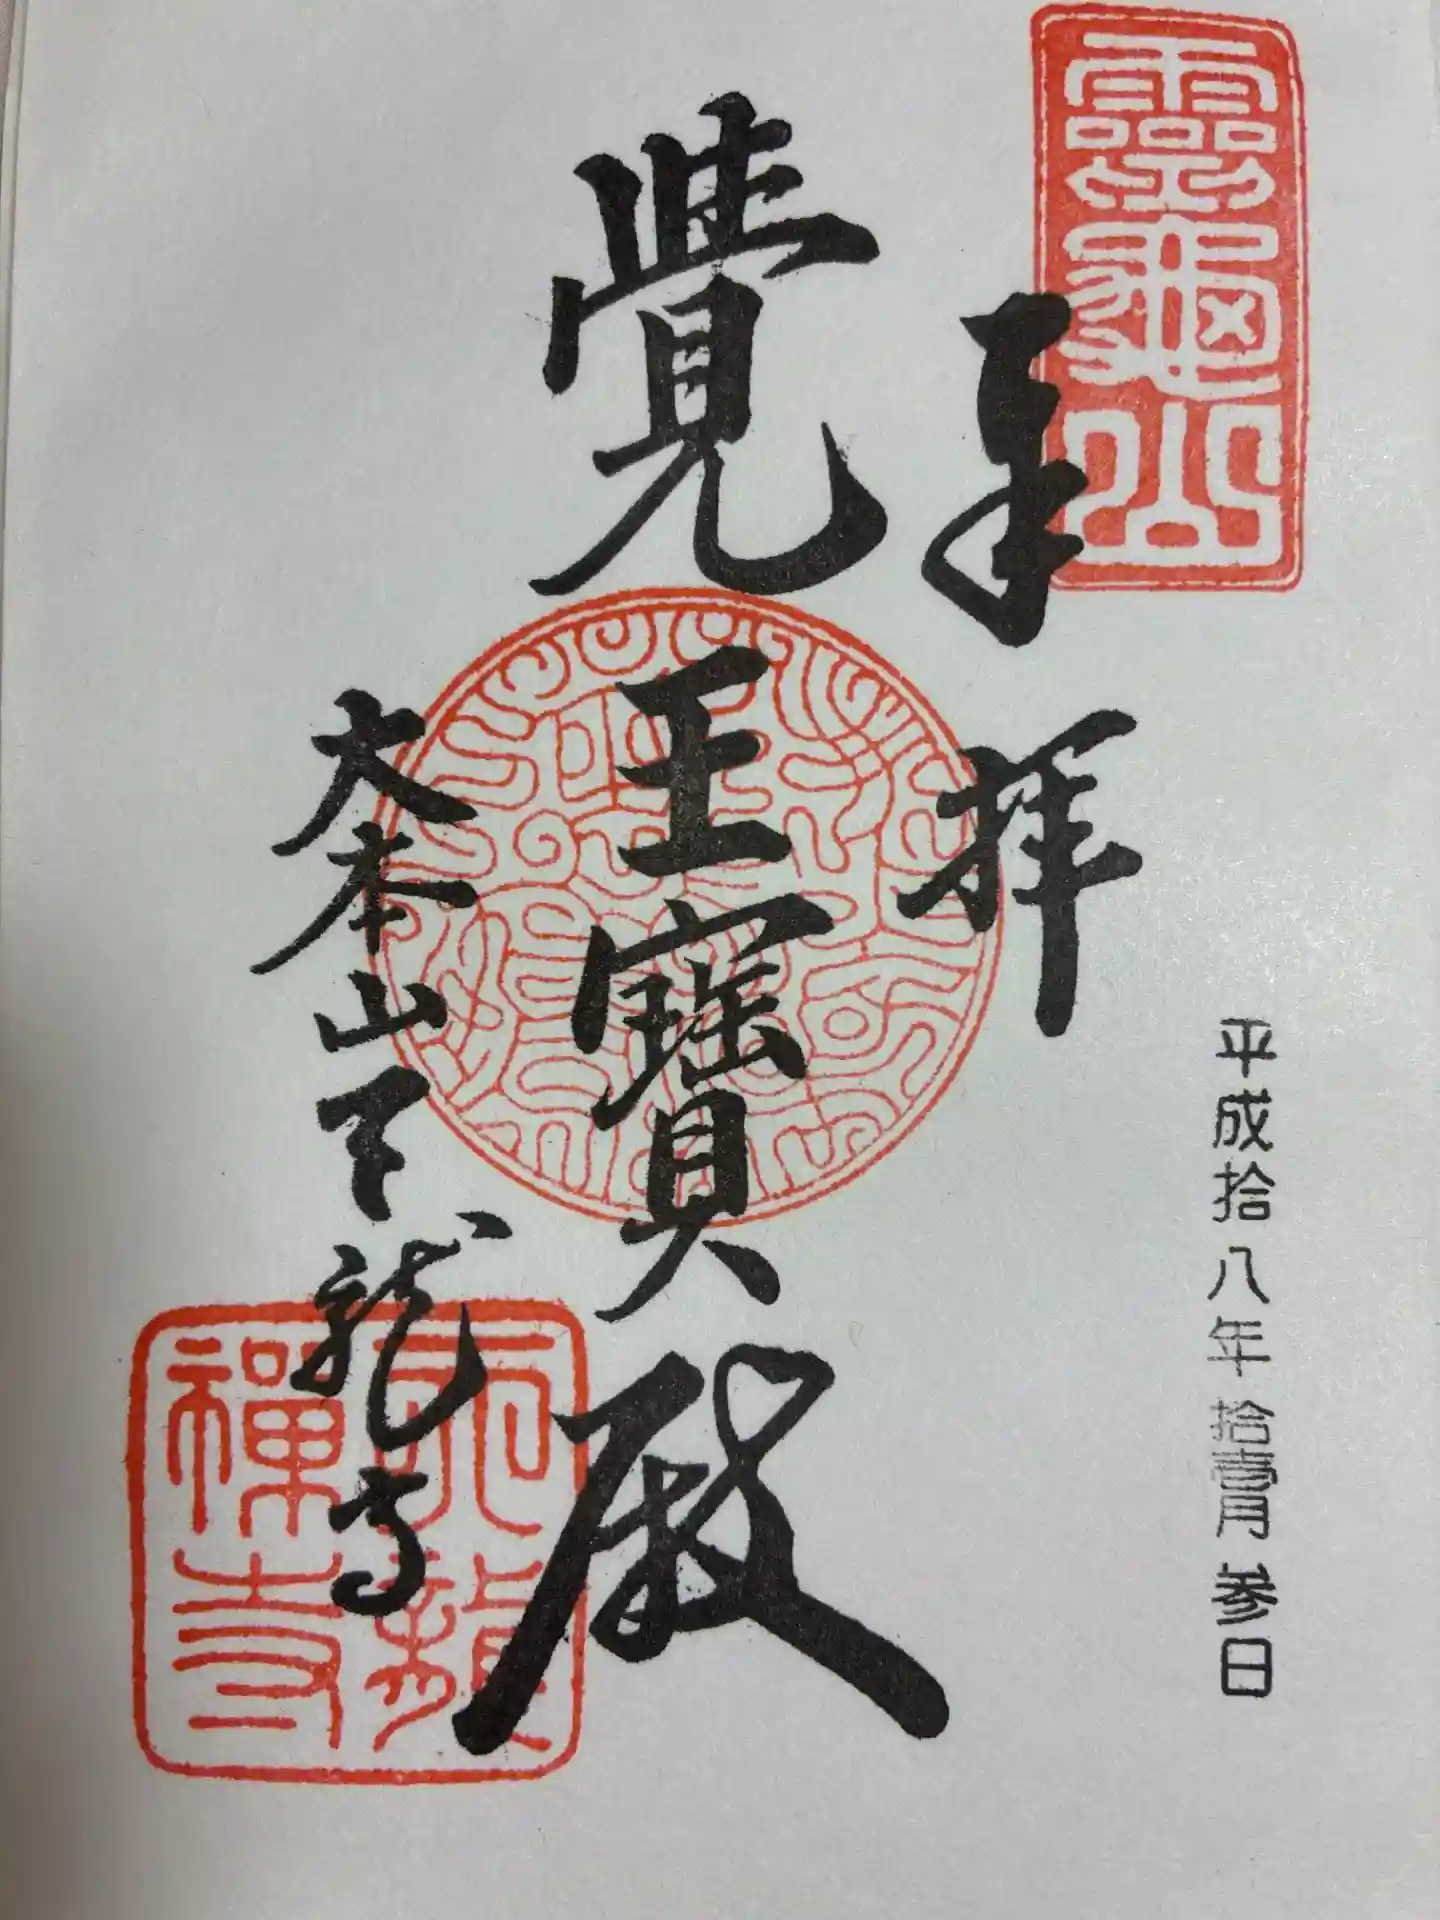 靈龜山
奉拜
平成拾八年拾壹月參日
覺王寶殿
大本山天龍寺
天龍
禪寺